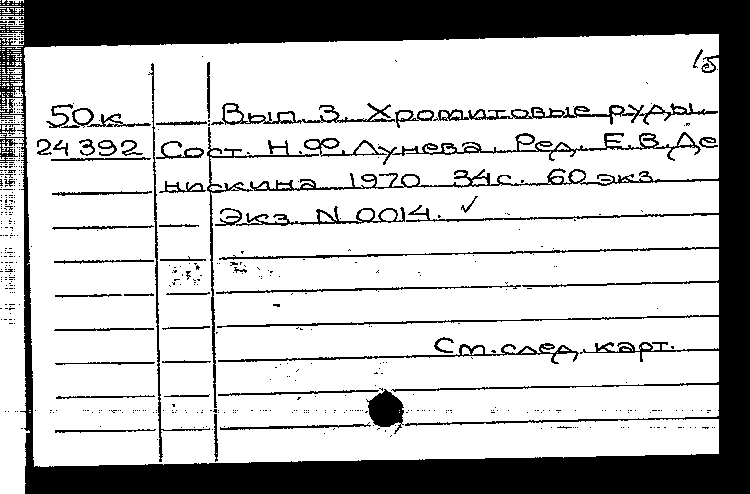 15
50к Вып. 3. Хромитовые руды.
24392 Сост. Н.Ф. Лунева. Ред. Е.В. Де
нискина 1970 34с. 60 экз.
Экз. N 0014. ✓
См. след. карт.